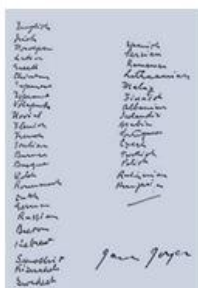 English
Irish
Norwegian
Latin
Greek
Chinese
Japanese
Esperanto
Volapuk
Novial
Flemish
French
Italian
Burmese
Basque
Welsh
Roumansch
Dutch
German
Russian
Breton
Hebrew
Kisuaheli
Swedish
Spanish
Persian
Rumanian
Lithuanian
Malay
Finnish
Albanian
Icelandic
Arabic
Portuguese
Czech
Turkish
Polish
Ruthenian
Hungarian
James Joyce